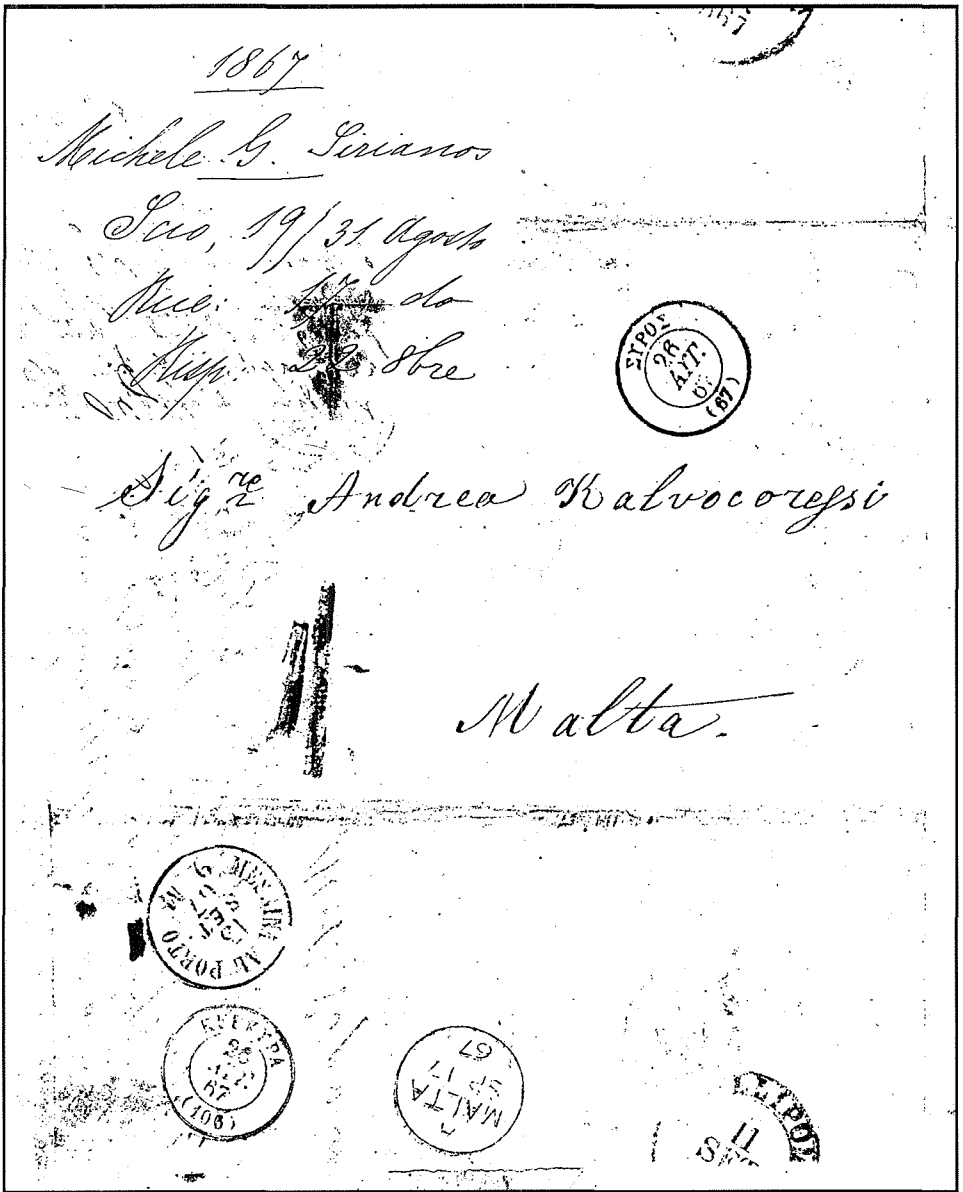 1867
Michele G. Sirianos
Scio, 19/31 Agosto
Rice: 17 do
Risp. 22 8bre
ΣΥΡΟΣ
26
ΑΥΓ.
67
(67)
Sigre Andrea Kalvocoressi
Malta.
MESSINA AL PORTO
SET
ΚΕΡΚΥΡΑ
67
(106)
MALTA
SP 17
67
11